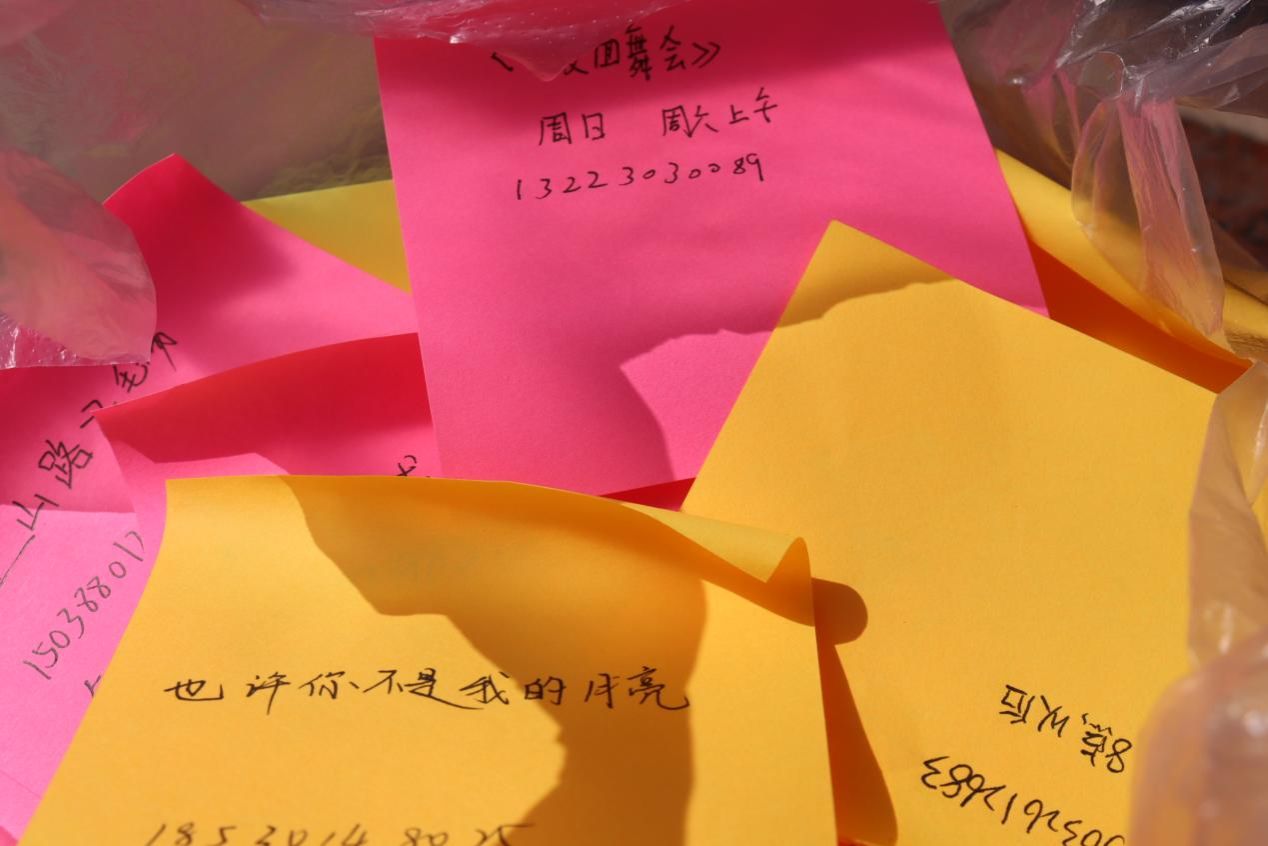 面舞会》
周日 周六上午
13223030089
山路
15038801
也许你不是我的月亮
18530148025
8点以后
032612683